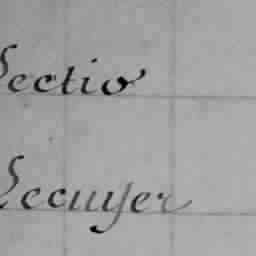 Sectio
Lecuyer